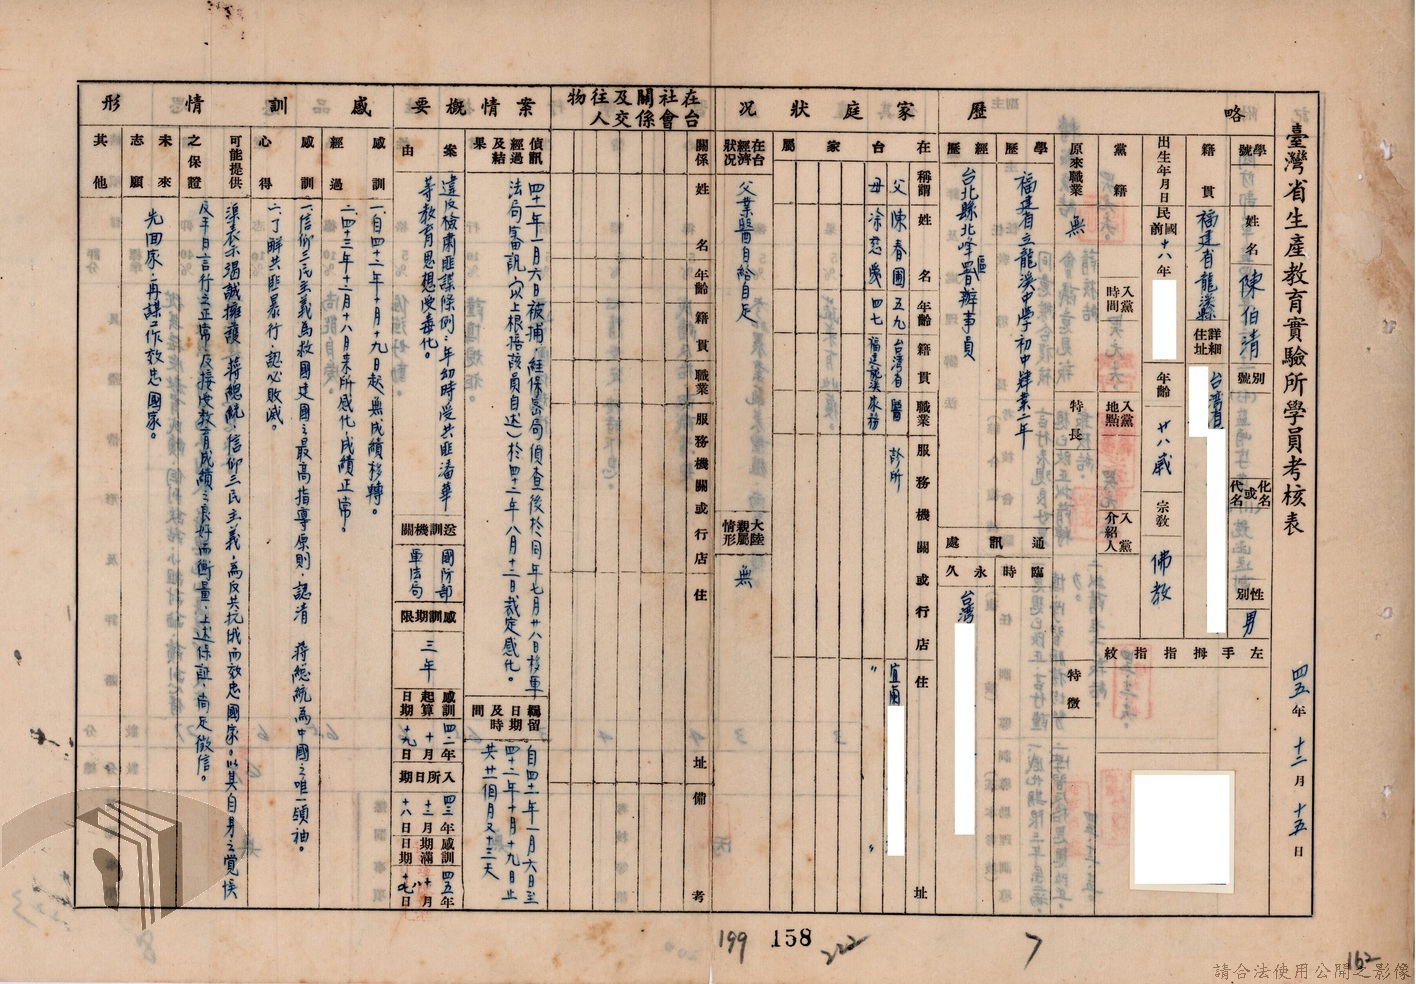 臺灣省生產教育實驗所學員考核表
四五年十二月十五日
略歷
學號
姓名 陳伯清
別號
化名或代名
性別 男
籍貫 福建省龍溪縣
詳細住址 台灣省
出生年月日 民國前 十八年
年齡 廿八歲
宗教 佛教
左手拇指指紋
黨籍
入黨時間
入黨地點
入黨介紹人
原來職業 無
特長
特徵
學歷 福建省立龍溪中學初中肄業二年
經歷 台北縣北峰區署辦事員
通訊處
臨時
永久 台灣
家庭狀況
在台家屬
稱謂 姓名 年齡 籍貫 職業 服務機關或行店 住址
父 陳春圃 五九 台灣省 醫 診所 宜蘭
母 涂慈愛 四七 福建龍溪 家務 〃 〃
在台經濟狀況 父業醫自給自足
大陸親屬情形 無
在台社會關係及交往人物
關係 姓名 年齡 籍貫 職業 服務機關或行店 住址 備考
案情概要
偵訊經過及結果 四十一年一月六日被捕，經保密局偵查後於同年七月廿八日移軍
法局審訊（以上根據該員自述）於四十二年八月十二日裁定感化。
羈留日期及時間 自四十一年一月六日至
四十二年十月十九日止
共廿一個月又十三天
案由 違反檢肅匪諜條例：年幼時受共匪潘華
等教育思想受毒化。
送訓機關 國防部軍法局
感訓期限 三年
感訓起算日期 四二年十月十九日
入所日期 四三年十二月十八日
感訓期滿日期 四五年十月十八日
感訓情形
感訓經過 一、自四十二年十月十九日起無成績移轉。
二、四十三年十二月十八日來所感化，成績正常。
感訓心得 一、信仰三民主義為救國建國之最高指導原則，認清 蔣總統為中國之唯一領袖。
二、了解共匪暴行，認必敗滅。
可能提供之保證 渠表示竭誠擁護 蔣總統，信仰三民主義，為反共抗俄而效忠國家。以其自身之覺悟
及平日言行之正常，及接受教育成績之良好而衡量，上述保證，尚足徵信。
未來志願 先回家，再謀工作效忠國家。
其他
199 158 222 7 162
請合法使用公開之影像